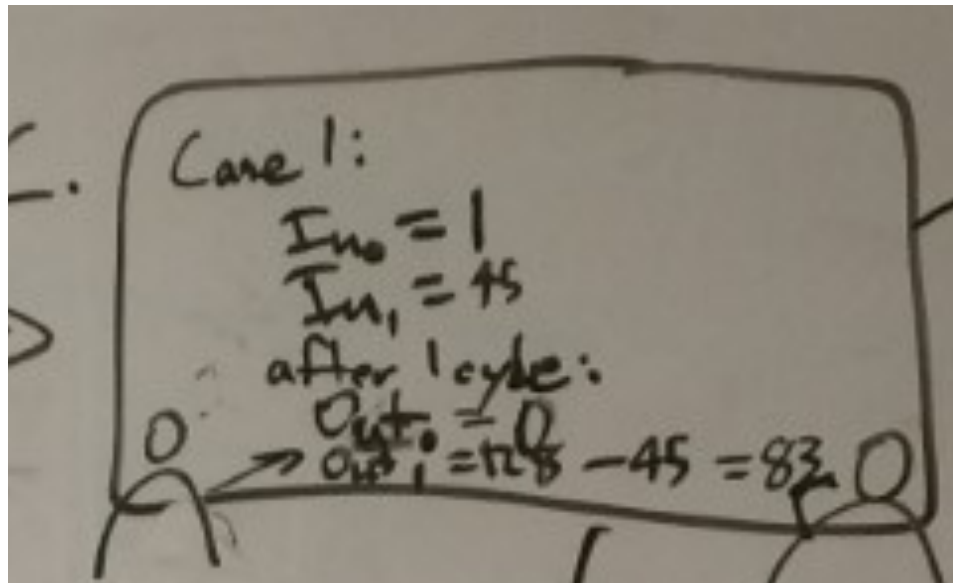 Case 1:
In₀ = 1
In₁ = 45
after 1 cycle:
Out₀ = 0
Out₁ = 128 - 45 = 83